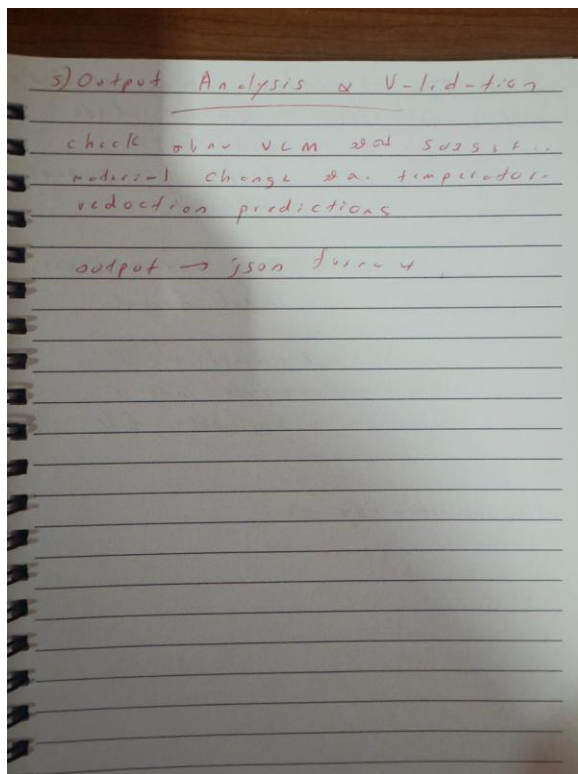 5) Output Analysis & Validation
check VLM suggest..
material change temperature
reduction predictions
output → json format.